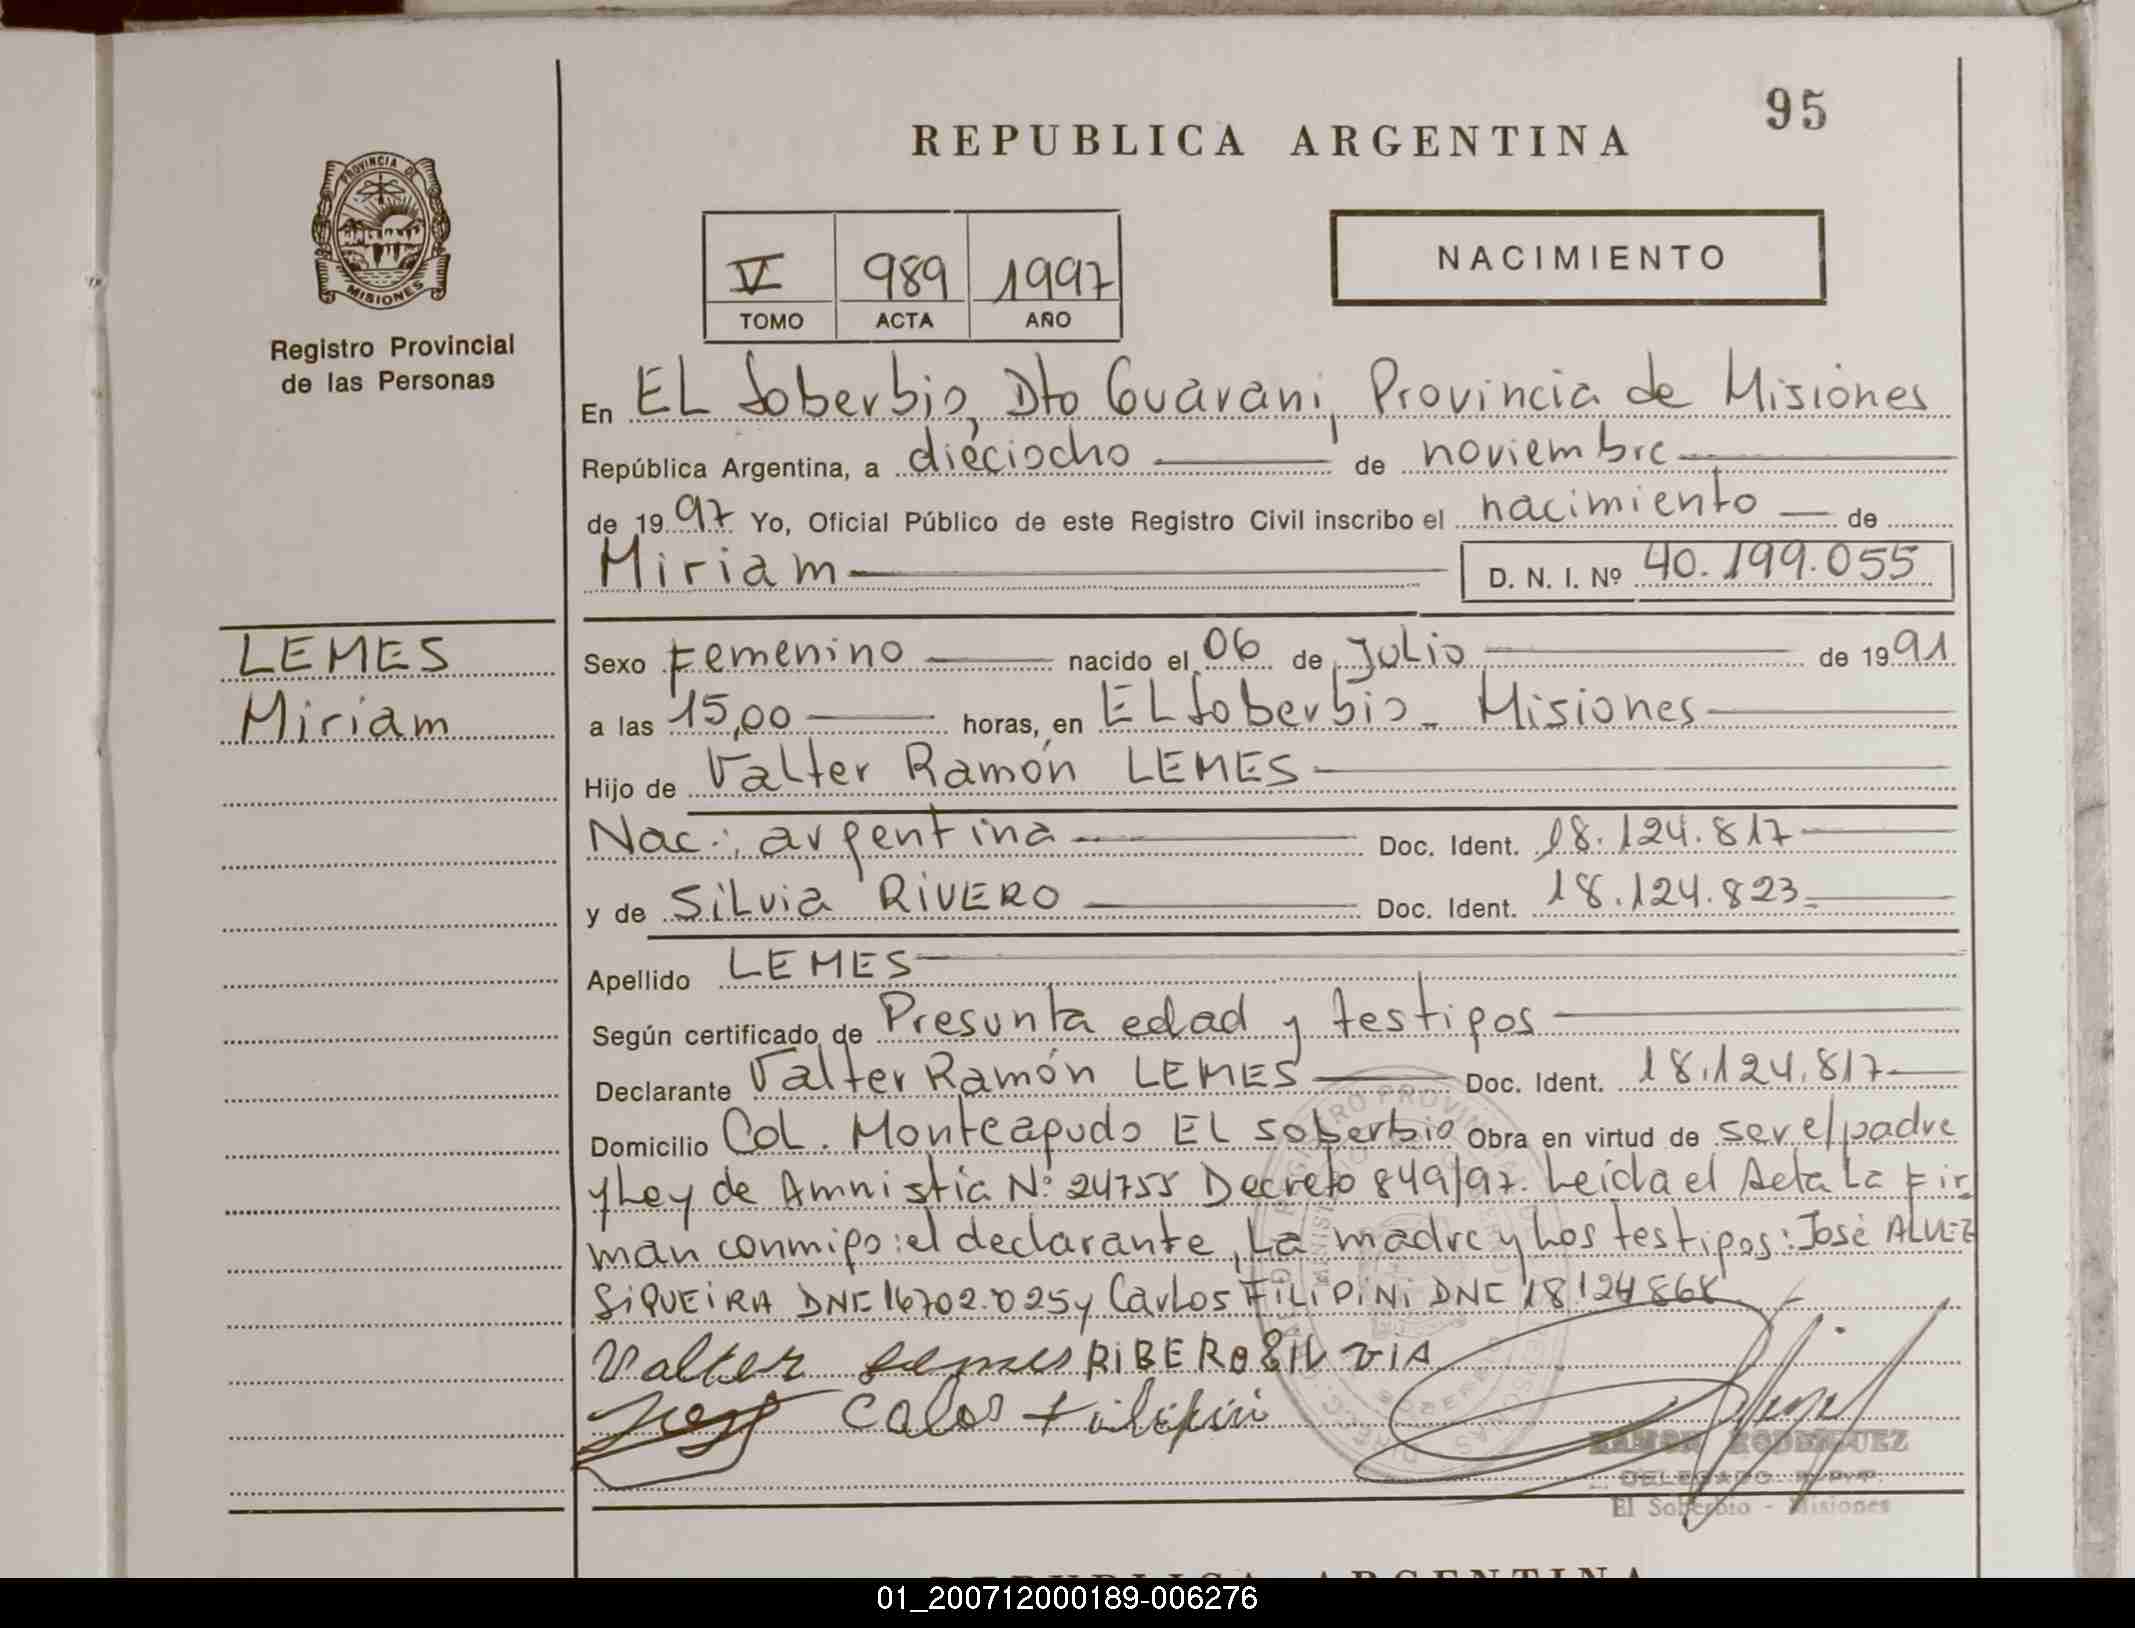 95
REPUBLICA ARGENTINA
PROVINCIA DE
MISIONES
Registro Provincial
de las Personas
NACIMIENTO
V 989 1997
TOMO ACTA AÑO
En EL Soberbio, Dto Guarani, Provincia de Misiones
República Argentina, a dieciocho de noviembre
de 1997 Yo, Oficial Público de este Registro Civil inscribo el nacimiento de
Miriam D. N. I. Nº 40.199.055
LEMES
Miriam
Sexo Femenino nacido el 06 de Julio de 1991
a las 15,00 horas, en EL Soberbio - Misiones
Hijo de Valter Ramón LEMES
Nac.: argentina Doc. Ident. 18.124.817
y de SiLvia RiVERO Doc. Ident. 18.124.823
Apellido LEMES
Según certificado de Presunta edad y testigos
Declarante Valter Ramón LEMES Doc. Ident. 18.124.817
Domicilio Col. Monteagudo EL Soberbio Obra en virtud de ser el padre
y Ley de Amnistia Nº 24755 Decreto 849/97. Leída el Acta La Fir
man conmigo: el declarante, La madre y Los testigos: José ALVEZ
SiQUEiRA DNI 16702.025 y Carlos FiLiPiNi DNI 18124868
Valter Lemes RiBERO SILVIA
Calos Filipini
RAMON RODRIGUEZ
DELEGADO R.P.P.
El Soberbio - Misiones
REPUBLICA ARGENTINA
01_200712000189-006276